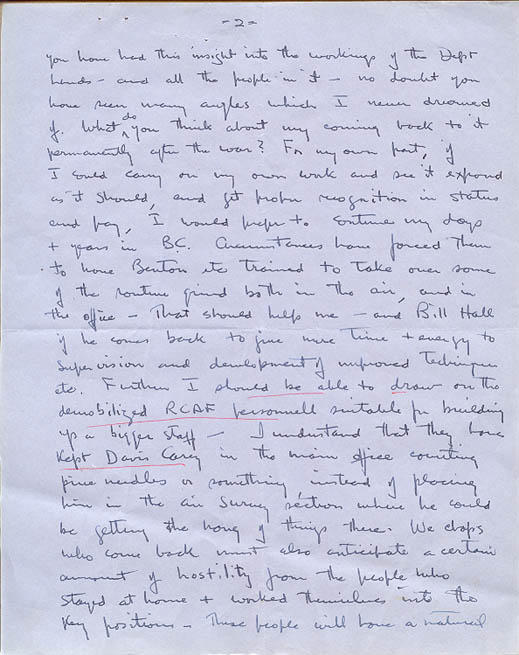 - 2 -
you have had this insight into the workings of the Dept
hands - and all the people in it - no doubt you
have seen many angles which I never dreamed
of. What do you think about my coming back to it
permanently after the war? For my own part, if
I could carry on my own work and see it expand
as it should, and get proper recognition in status
and pay, I would prefer to continue my days
+ years in BC. Circumstances have forced them
to have Benton etc trained to take over some
of the routine grind both in the air, and in
the office - That should help me - and Bill Hall
if he comes back to give more time + energy to
supervision and development of improved techniques
etc. Further I should be able to draw on the
demobilized RCAF personnell suitable for building
up a bigger staff - I understand that they have
kept Davis Carey in the main office counting
pine needles or something instead of placing
him in the air survey section where he could
be getting the hang of things there. We chaps
who come back must also anticipate a certain
amount of hostility from the people who
stayed at home + worked themselves into the
key positions - These people will have a natural